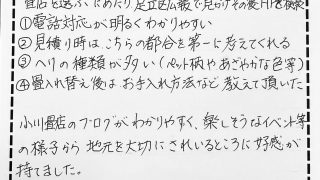 畳店を選ぶにあたり足立区広報で見かけその後HPを検索
①電話対応が明るくわかりやすい
②見積り時はこちらの都合を第一に考えてくれる
③ヘリの種類が多い(ペット柄やあざやかな色等)
④畳入れ替え後はお手入れ方法など教えて頂いた
小川畳店のブログがわかりやすく、楽しそうなイベント等
の様子から 地元を大切にされいるところに好感が
持てました。